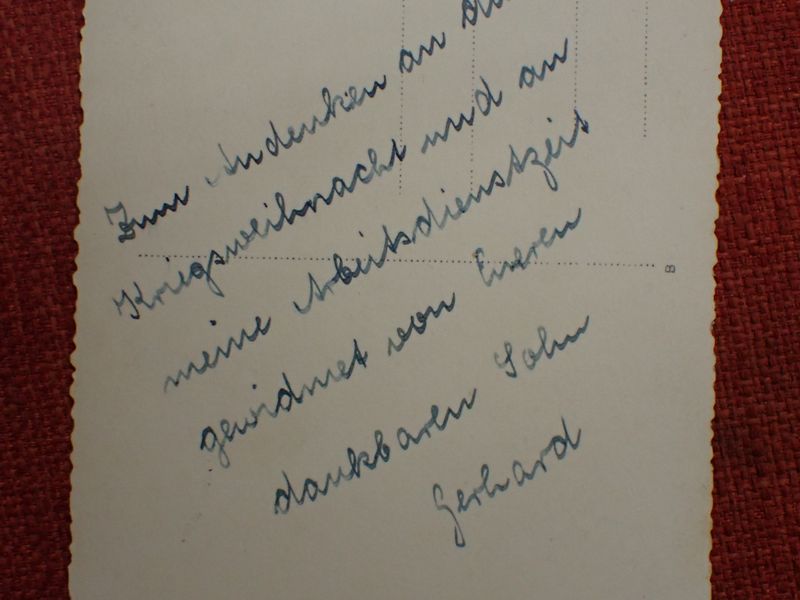 Zum Andenken an
Kriegsweihnacht und an
meine Arbeitsdienstzeit
gewidmet von Eueren
dankbaren Sohn
Gerhard
B